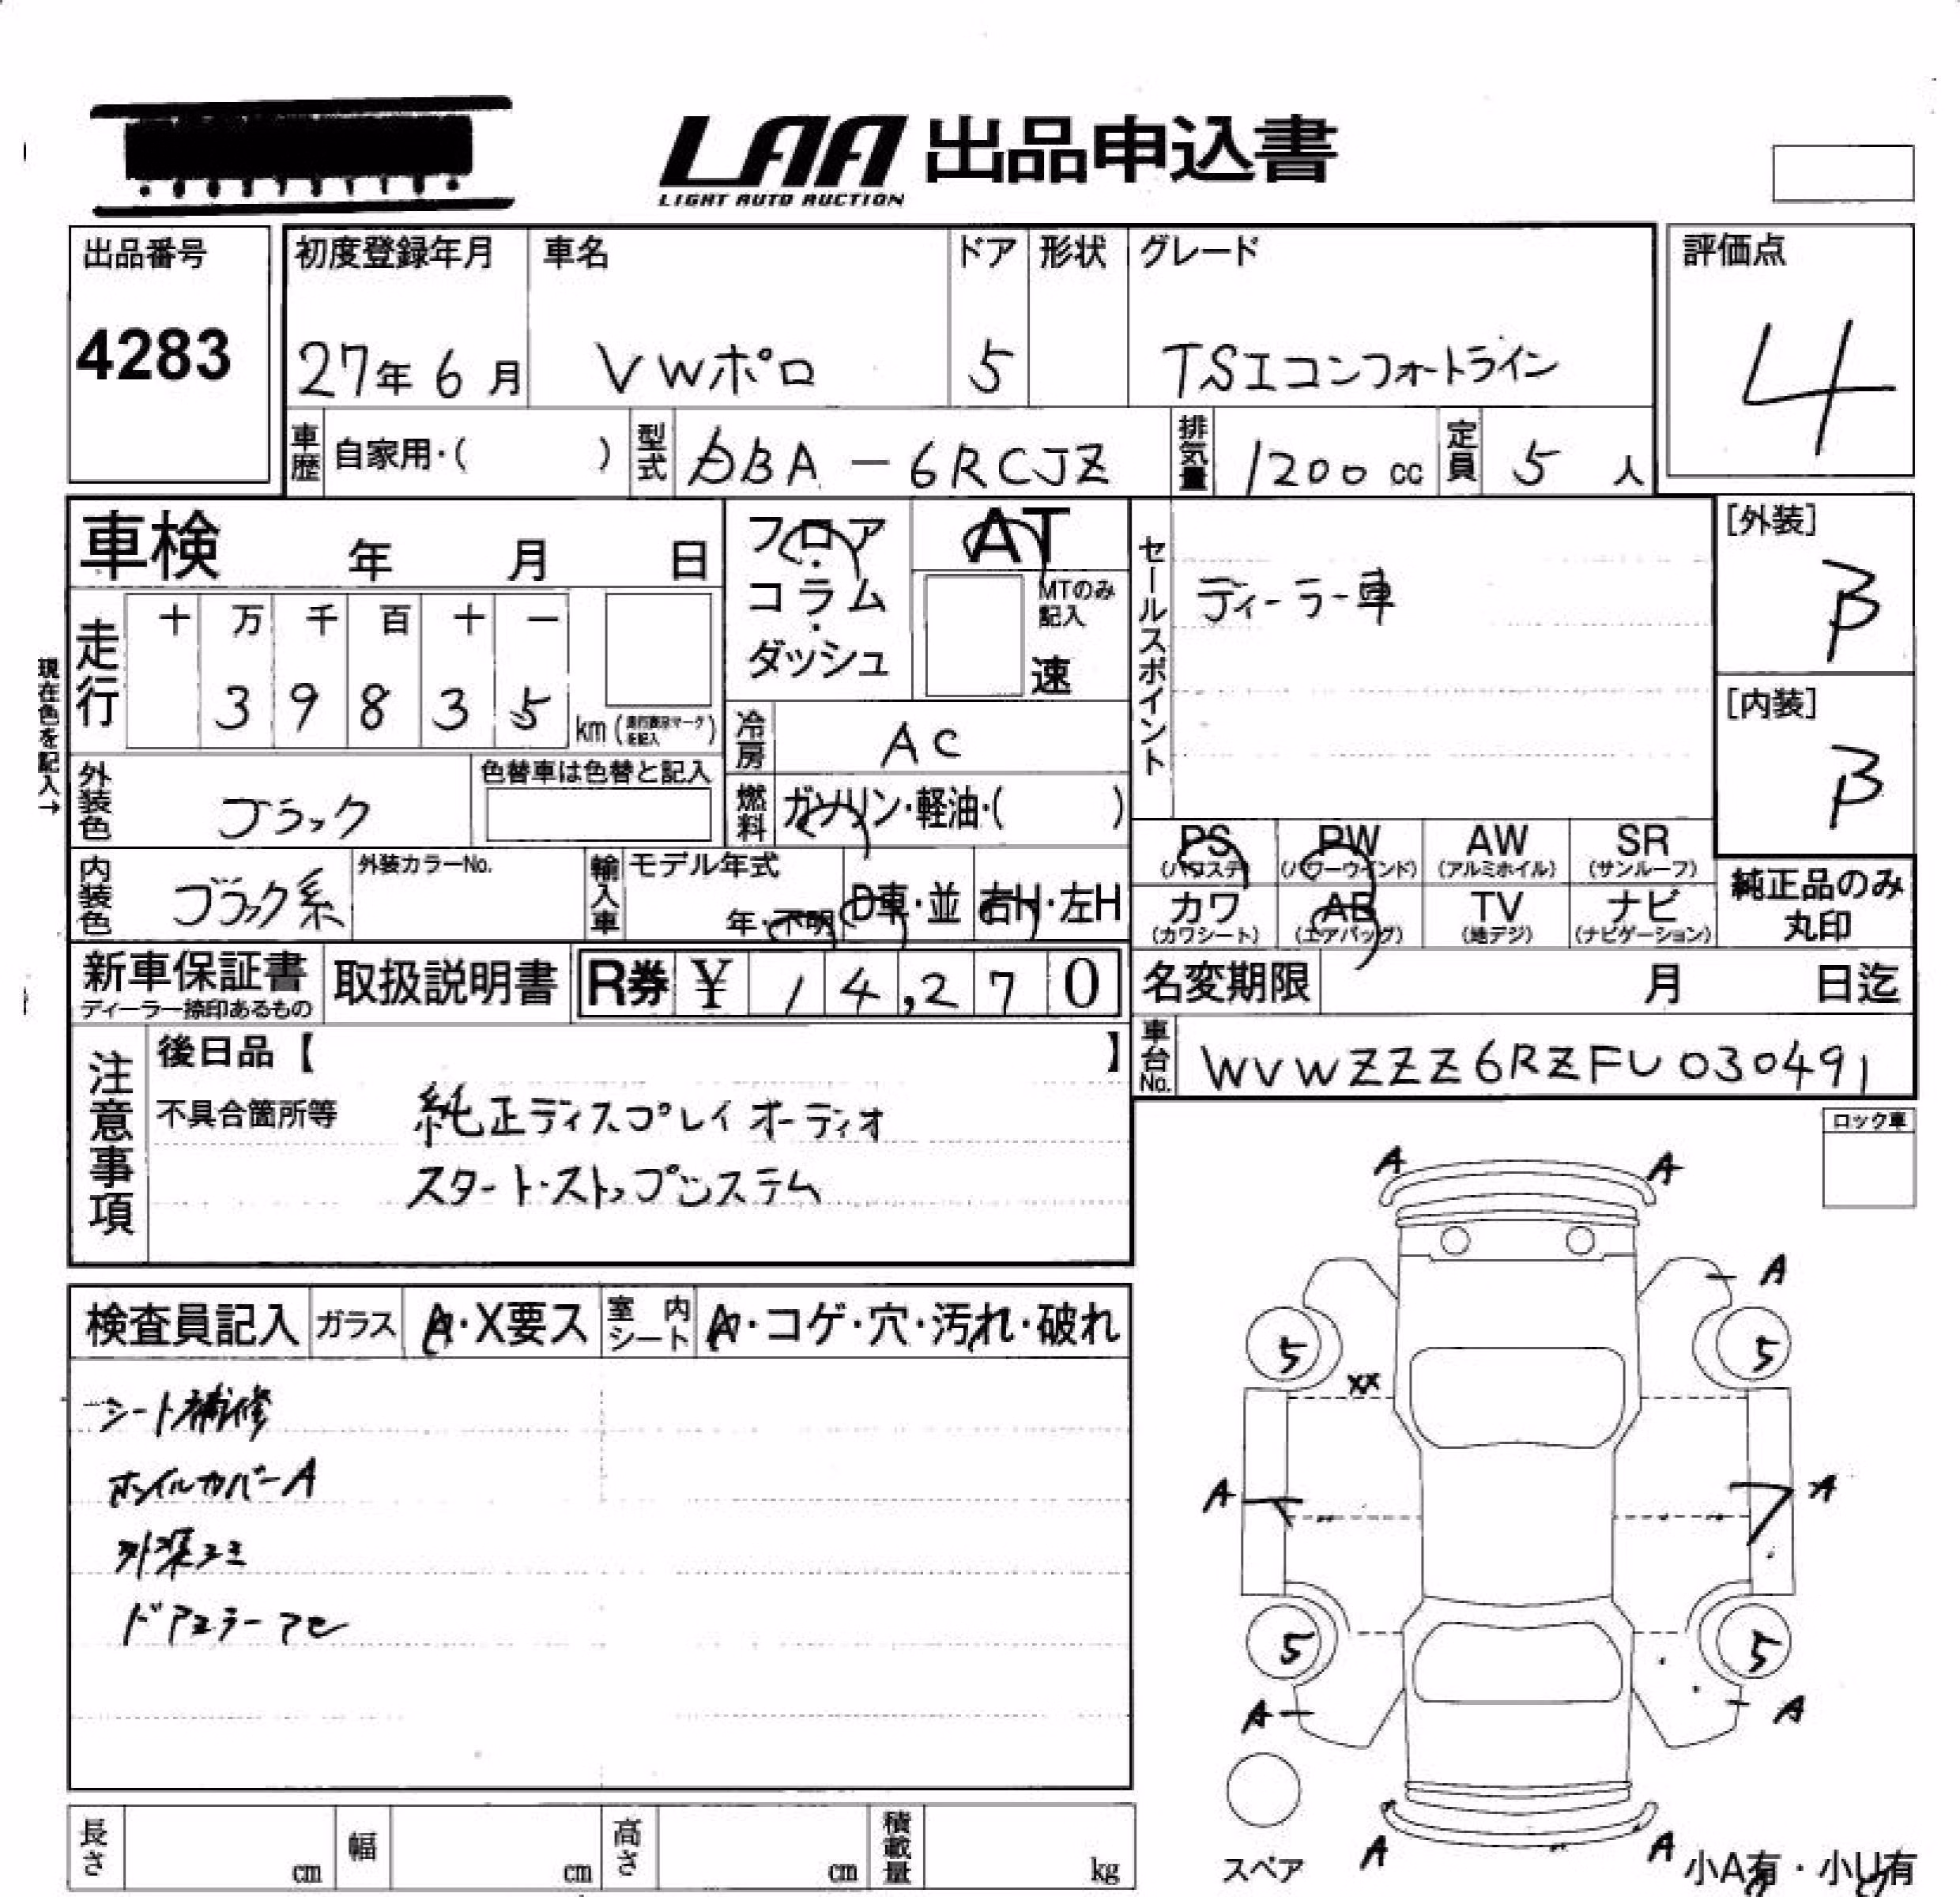 LAA 出品申込書
LIGHT AUTO AUCTION
出品番号 初度登録年月 車名 ドア 形状 グレード 評価点
4283 27年 6月 VWポロ 5 TSIコンフォートライン 4
車歴 自家用・( ) 型式 DBA-6RCJZ 排気量 1200 cc 定員 5 人
車検 年 月 日
フロア・コラム・ダッシュ
AT
MTのみ記入
速
セールスポイント
ディーラー車
[外装]
B
[内装]
B
現在色を記入→
走行 十 万 千 百 十 一
3 9 8 3 5 km (走行表示マークを記入)
冷房 AC
外装色 ブラック 色替車は色替と記入
燃料 ガソリン・軽油・( )
内装色 ブラック系 外装カラーNo. 輸入車 モデル年式 年・不明 D車・並 右H・左H
PS (パワステ) PW (パワーウインド) AW (アルミホイル) SR (サンルーフ)
カワ (カワシート) AB (エアバッグ) TV (地デジ) ナビ (ナビゲーション)
純正品のみ丸印
新車保証書 ディーラー捺印あるもの 取扱説明書 R券 ¥ 14,270
名変期限 月 日迄
車台No. WVWZZZ6RZFU030491
注意事項
後日品【 】
不具合箇所等 純正ディスプレイオーディオ
スタート・ストップシステム
ロック車
検査員記入 ガラス A・X要ス 室内シート A・コゲ・穴・汚れ・破れ
シート補修
ホイルカバーA
ドアミラー
A A
A
5 5
XX
A A
5 5
A A
A A
スペア
小A有・小U有
長さ cm 幅 cm 高さ cm 積載量 kg